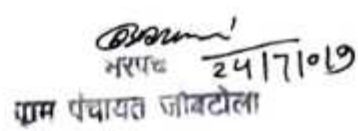 सरपंच 24/7/019
ग्राम पंचायत जीबटोला